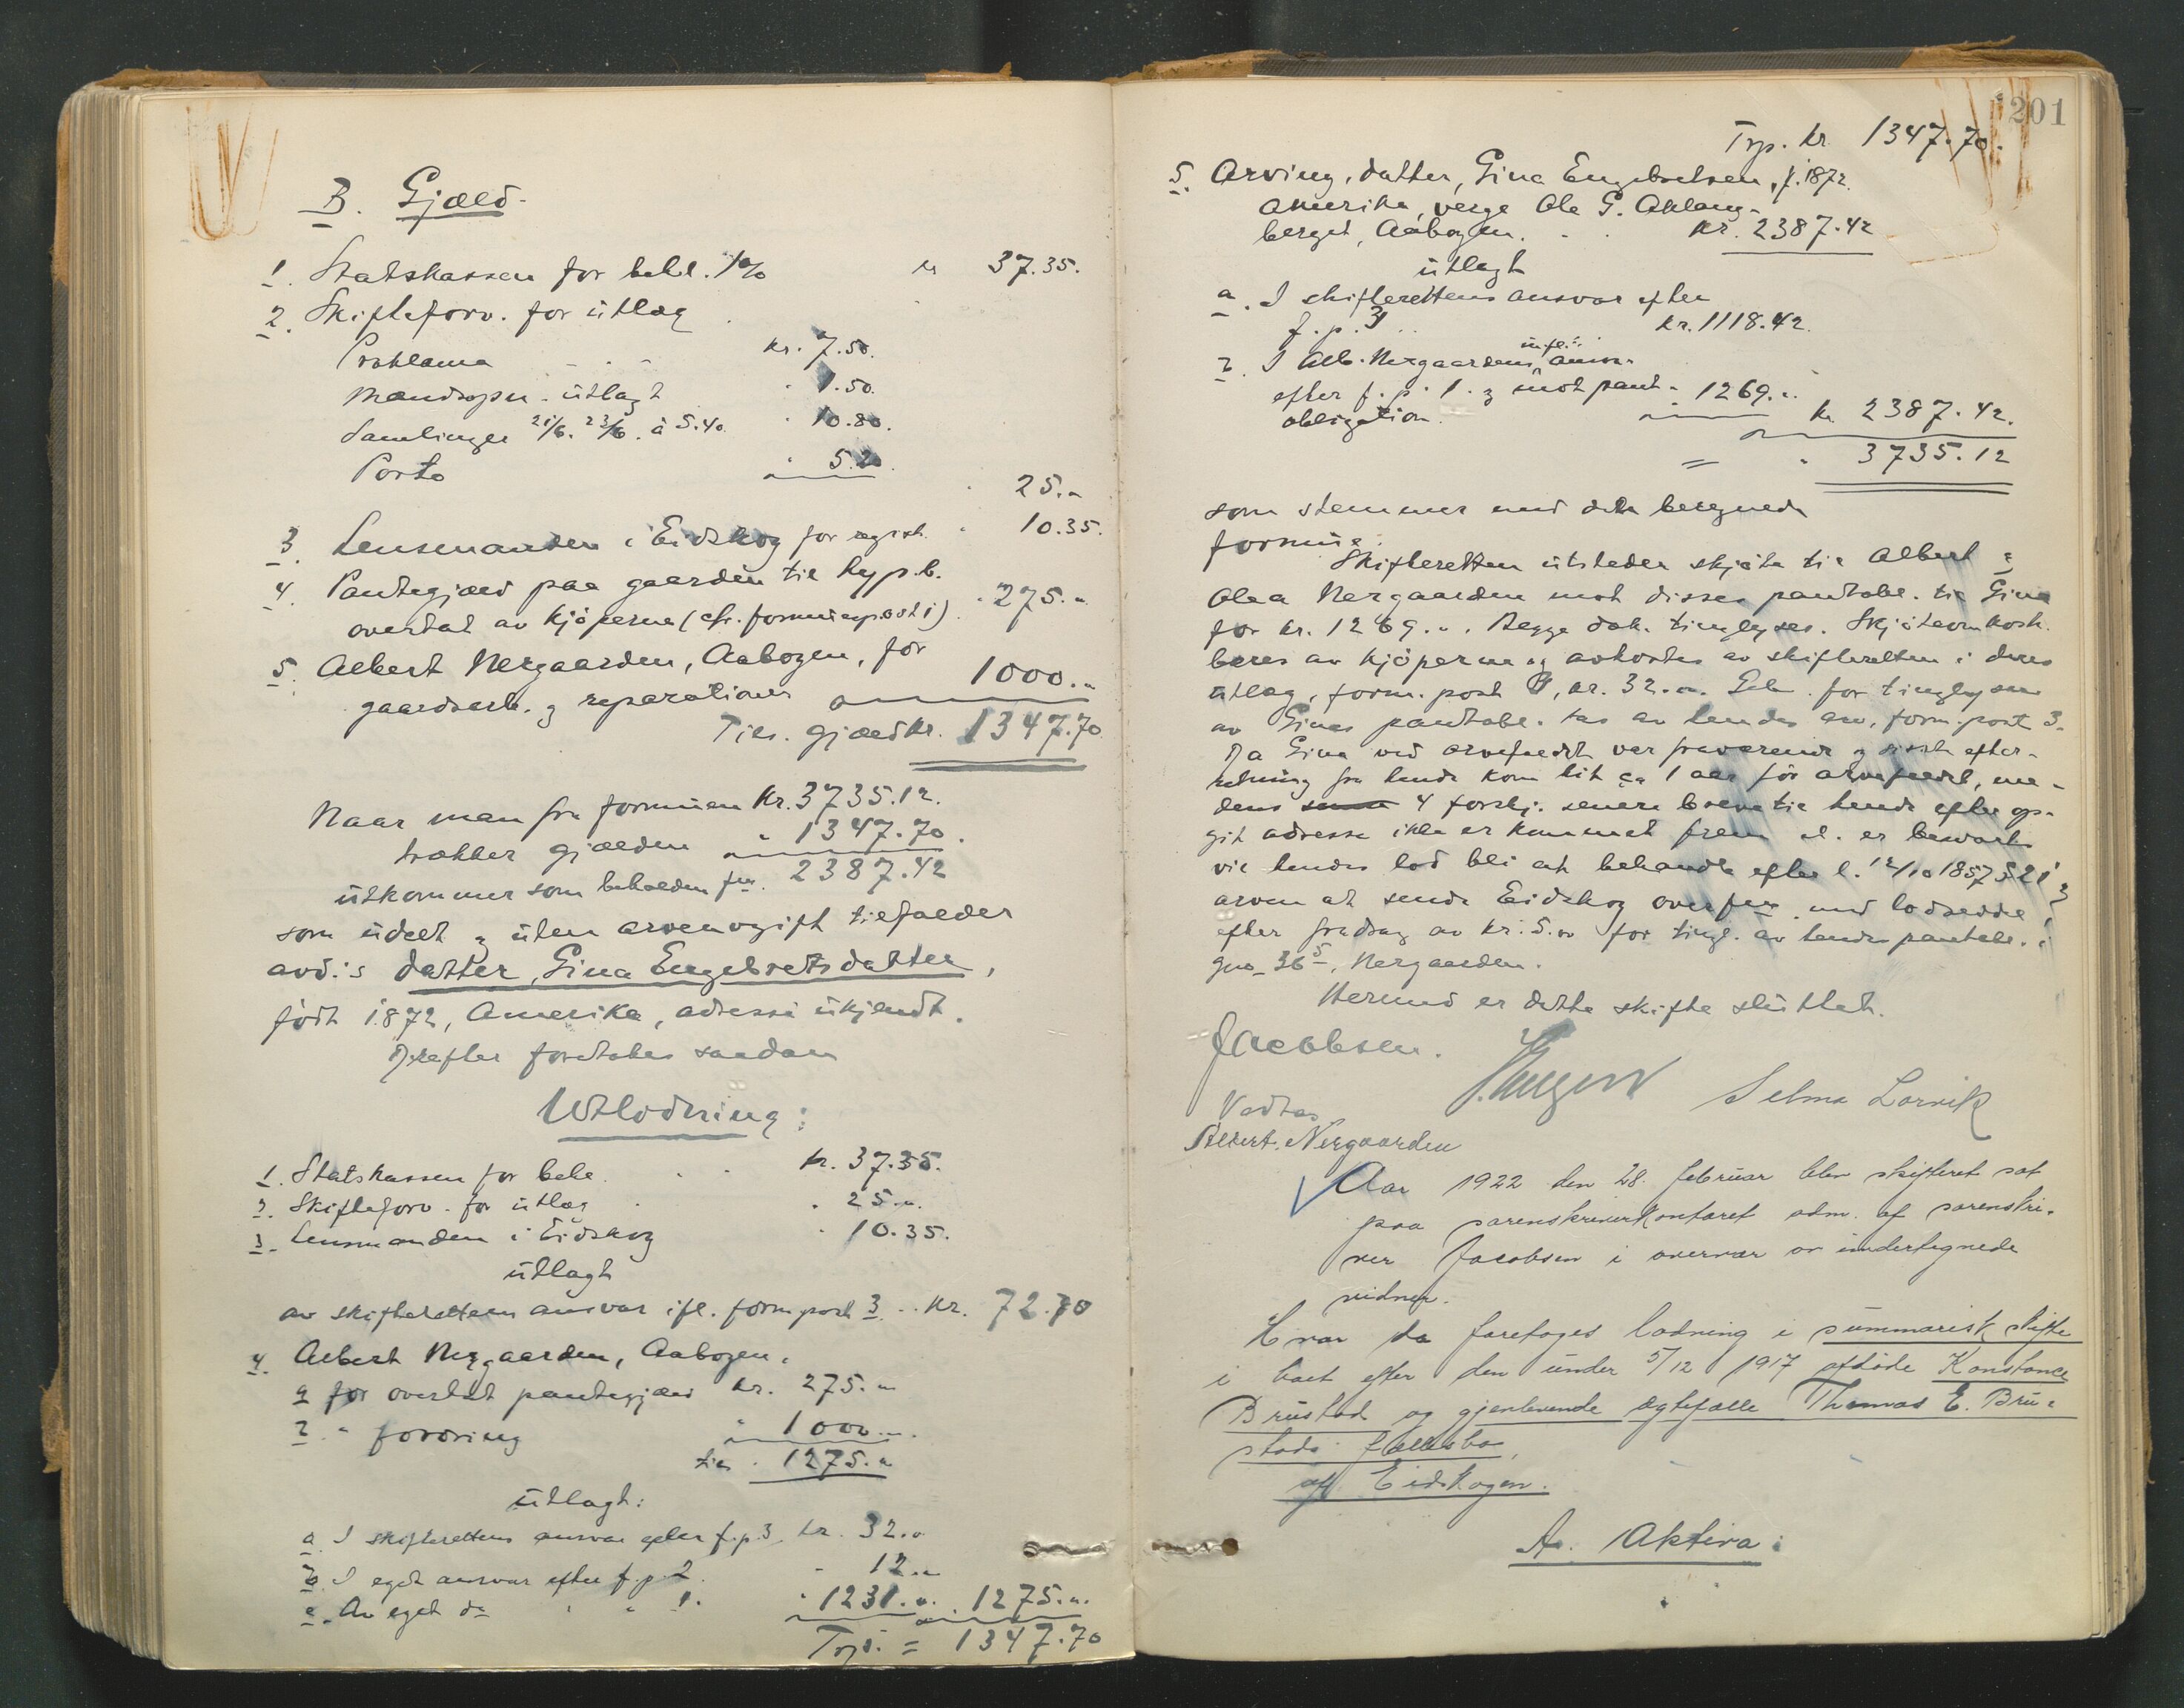 B. Gjæld.
1. Statskassen for beh. 1% kr 37.35.
2. Skifteforv. for utlæg
Proklama kr. 7.50.
Mændsopn. utlagt " 1.50.
Samlinger 21/6. 23/6. à 5.40. " 10.80.
Porto " 5.20.
" 25.-
3. Lensmanden i Eidskog for regist. " 10.35.
4. Pantegjæld paa gaarden til hyp.b.
overtat av kjøperne (cfr. formuespost 1) " 275.-
5. Albert Nergaarden, Aabogen, for
gaardsarb. og reparationer 1000.-
Tils. gjæld kr. 1347.70
Naar man fra formuen kr. 3735.12.
trækker gjælden " 1347.70.
utkommer som beholden fm. 2387.42
som udelt og uten arveavgift tilfalder
avd.s datter Gina Engebretsdatter,
født 1872, Amerika, adresse ukjendt.
Derefter foretokes saadan
Utlodning:
1. Statskassen for beh. kr. 37.35.
2. Skifteforv. for utlæg " 25.-
3. Lensmanden i Eidskog " 10.35.
utlagt
av skifterettens ansvar ifl. form post 3 .. kr. 72.70
4. Albert Nergaarden, Aabogen,
a for overtat pantegjæld kr. 275.-
b. " fordring " 1000.-
tils. 1275.-
utlagt:
a. I skifterettens ansvar efter f.p.3 kr. 32.-
b. I eget ansvar efter f.p.2. " 12.-
c. Av eget do " " 1. " 1231.- 1275.-
Trp. = 1347.70
201
Trp. kr 1347.70.
5. Arving, datter, Gina Engebretsen, f. 1872.
Amerika, verge Ole G. Aklang-
berget, Aabogen. kr. 2387.42
utlagt
a. I skifterettens ansvar efter
f.p. 3 .. kr. 1118.42.
b. I Alb. Nergaardens ansv.
efter f.p. 1. og mot pant- " 1269.-
obligation. kr 2387.42.
= " 3735.12
som stemmer med den beregnede
formue.
Skifteretten utsteder skjøte til Albert &
Olea Nergaarden mot disses pantobl. til Gina
for kr. 1269.-. Begge dok. tinglyses. Skjøteomkost.
bæres av kjøperne og avholdes av skifteretten i deres
utlæg, form. post 4, kr. 32.-. Geb. for tinglysn
av Ginas pantobl. tas av hendes arv, form.post 3.
Da Gina ved arvefaldet var fraværende og sidste efter-
retning fra hende kom hit ca 1 aar før arvefaldet, me-
dens 4 forskj. senere breve til hende efter op-
git adresse ikke er kommet frem el. er besvart
vil hendes lod bli at behandle efter l. 12/10 1857 § 21 og
arven at sende Eidskog overfm. med lodseddel
efter fradrag av kr. 5.- for tingl. av hendes pantobl. i
gno 36 5, Nergaarden.
Hermed er dette skifte sluttet.
Jacobsen.
Selma Lorvik
Vedtas
Albert. Nergaarden
Aar 1922 den 28. februar blev skifteret sat
paa sorenskriverkontoret adm. af sorenskri-
ver Jacobsen i overvær av undertegnede
vidner.
Hvor da foretoges lodning i summarisk skifte
i boet efter den under 5/12 1917 afdøde Konstance
Brustad og gjenlevende ægtefælle Thomas E. Bru-
stads fællesbo,
af Eidskogen.
A. Aktiva: